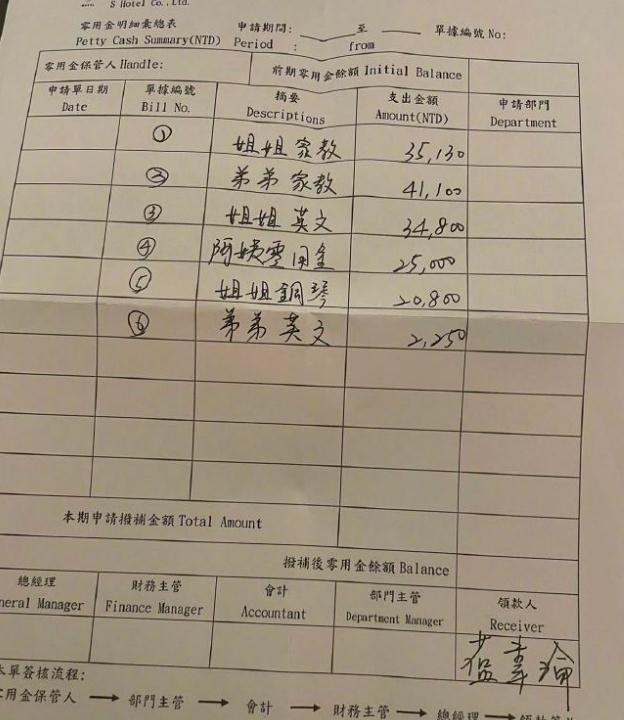 S Hotel Co., Ltd.
零用金明細彙總表 申請期間: 至 單據編號 No:
Petty Cash Summary(NTD) Period : from
零用金保管人 Handle: 前期零用金餘額 Initial Balance
申請單日期 單據編號 摘要 支出金額 申請部門
Date Bill No. Descriptions Amount(NTD) Department
① 姐姐家教 35,130
② 弟弟家教 41,100
③ 姐姐英文 34,800
④ 阿姨零用金 25,000
⑤ 姐姐鋼琴 20,800
⑥ 弟弟英文 2,250
本期申請撥補金額 Total Amount
撥補後零用金餘額 Balance
總經理 財務主管 會計 部門主管 領款人
neral Manager Finance Manager Accountant Department Manager Receiver
本單簽核流程:
零用金保管人 → 部門主管 → 會計 → 財務主管 → 總經理 → 領款簽收